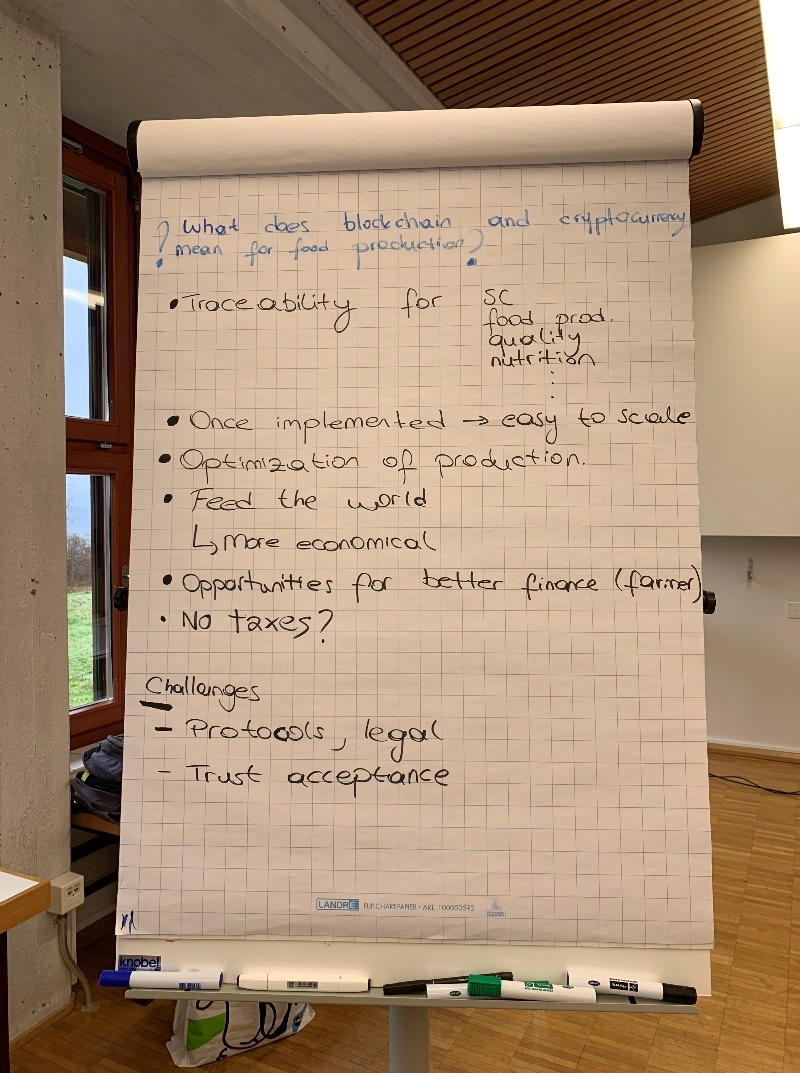 ? What does blockchain and cryptocurrency
mean for food production?
• Traceability for SC
food prod.
quality
nutrition
⋮
• Once implemented → easy to scale
• Optimization of production.
• Feed the world
↳ More economical
• Opportunities for better finance (farmer)
• No taxes?
Challanges
– Protocols, legal
– Trust acceptance
LANDRÉ FLIP-CHART-PAPIER • ART. 100050592
knobel